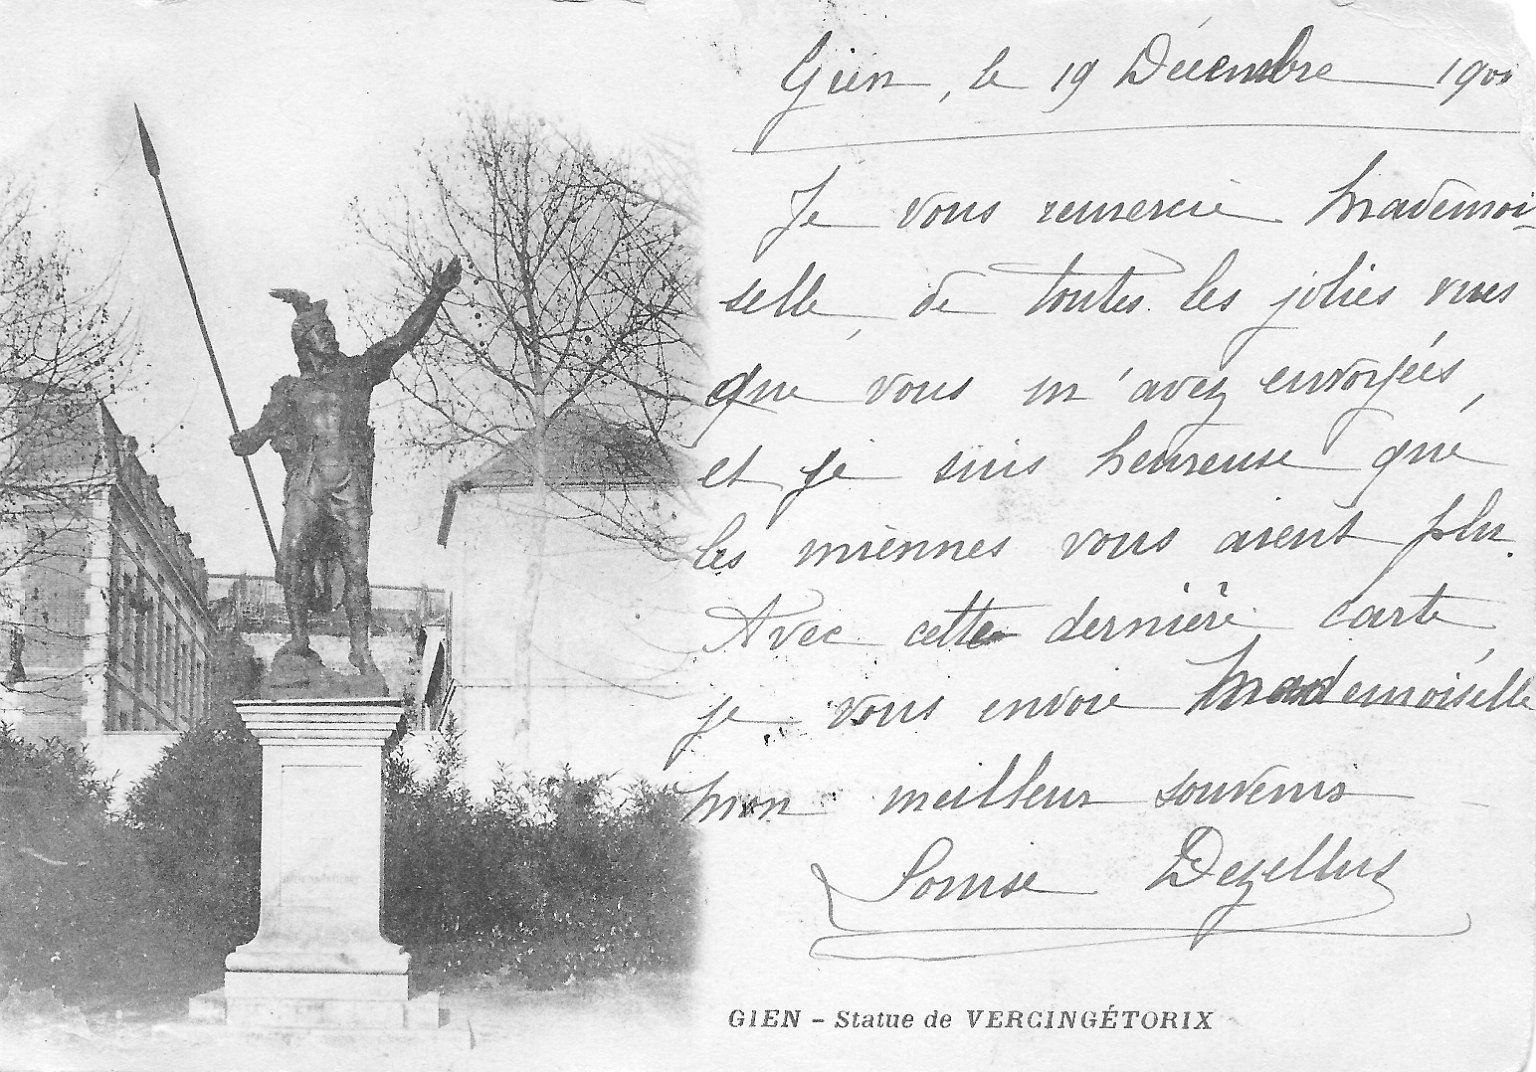 Gien, le 19 Décembre 190
Je vous remercie Mademoi-
selle, de toutes les jolies vues
que vous m'avez envoyées,
et je suis heureuse que
les miennes vous aient plu.
Avec cette dernière carte
je vous envoie Mademoiselle
mon meilleur souvenir
Louise Dezellus
GIEN - Statue de VERCINGÉTORIX